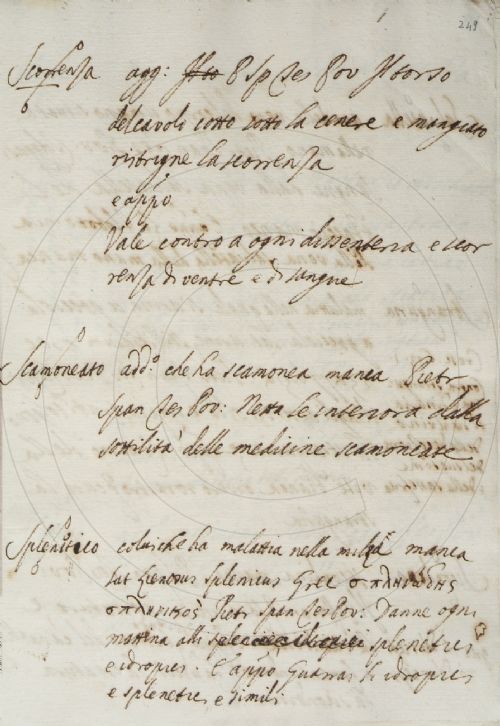 249
Scorrenza agg: P Sp Tes Pov Il torso
del cavoli cotto sotto la cenere e mangiato
ristrigne la scorrenza
e appo
Vale contro a ogni dissenteria e scor
renza di ventre e di sangue
Scamoneato add.o che ha scamonea manca Pietr
Span Tes Pov: Netta le interiora dalla
sottilità delle medicine scamoneate
Splenetico colui che ha malattia nella milza manca
lat lienosus splenicus Grec σπληνώδης
σπληνιτικός Pietr Span Tes Pov: Danne ogni
mattina alli splenetici
e idropici. E appo Guarras li idropici
e splenetici, e simili